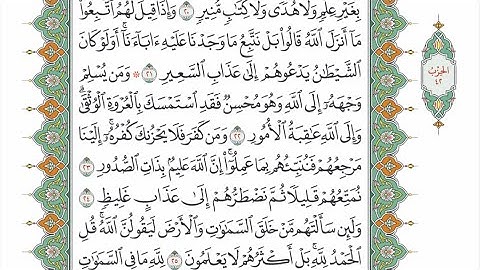 بِغَيْرِ عِلْمٍ وَلَا هُدًى وَلَا كِتَٰبٍ مُّنِيرٍ ٢٠ وَإِذَا قِيلَ لَهُمُ ٱتَّبِعُوا۟
مَآ أَنزَلَ ٱللَّهُ قَالُوا۟ بَلْ نَتَّبِعُ مَا وَجَدْنَا عَلَيْهِ ءَابَآءَنَآ ۚ أَوَلَوْ كَانَ
ٱلشَّيْطَٰنُ يَدْعُوهُمْ إِلَىٰ عَذَابِ ٱلسَّعِيرِ ٢١ ۞ وَمَن يُسْلِمْ
وَجْهَهُۥٓ إِلَى ٱللَّهِ وَهُوَ مُحْسِنٌ فَقَدِ ٱسْتَمْسَكَ بِٱلْعُرْوَةِ ٱلْوُثْقَىٰ ۗ
وَإِلَى ٱللَّهِ عَٰقِبَةُ ٱلْأُمُورِ ٢٢ وَمَن كَفَرَ فَلَا يَحْزُنكَ كُفْرُهُۥٓ ۚ إِلَيْنَا
مَرْجِعُهُمْ فَنُنَبِّئُهُم بِمَا عَمِلُوٓا۟ ۚ إِنَّ ٱللَّهَ عَلِيمٌۢ بِذَاتِ ٱلصُّدُورِ ٢٣
نُمَتِّعُهُمْ قَلِيلًا ثُمَّ نَضْطَرُّهُمْ إِلَىٰ عَذَابٍ غَلِيظٍ ٢٤
وَلَئِن سَأَلْتَهُم مَّنْ خَلَقَ ٱلسَّمَٰوَٰتِ وَٱلْأَرْضَ لَيَقُولُنَّ ٱللَّهُ ۚ قُلِ
ٱلْحَمْدُ لِلَّهِ ۚ بَلْ أَكْثَرُهُمْ لَا يَعْلَمُونَ ٢٥ لِلَّهِ مَا فِى ٱلسَّمَٰوَٰتِ
الحزب
٤٢